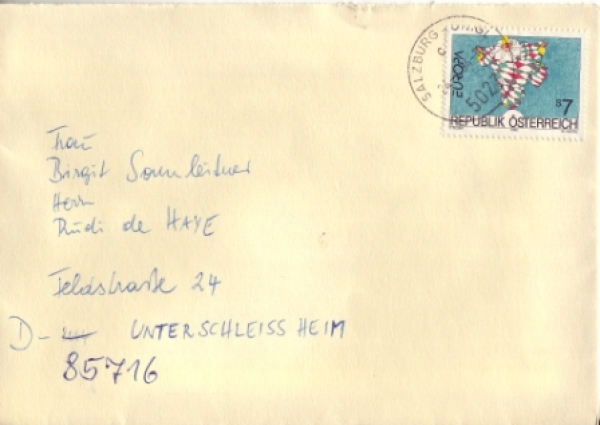 SALZBURG
502
EUROPA
s7
REPUBLIK ÖSTERREICH
Frau
Birgit Sonnleitner
Herrn
Rudi de HAYE
Feldstraße 24
D- UNTERSCHLEISSHEIM
85716